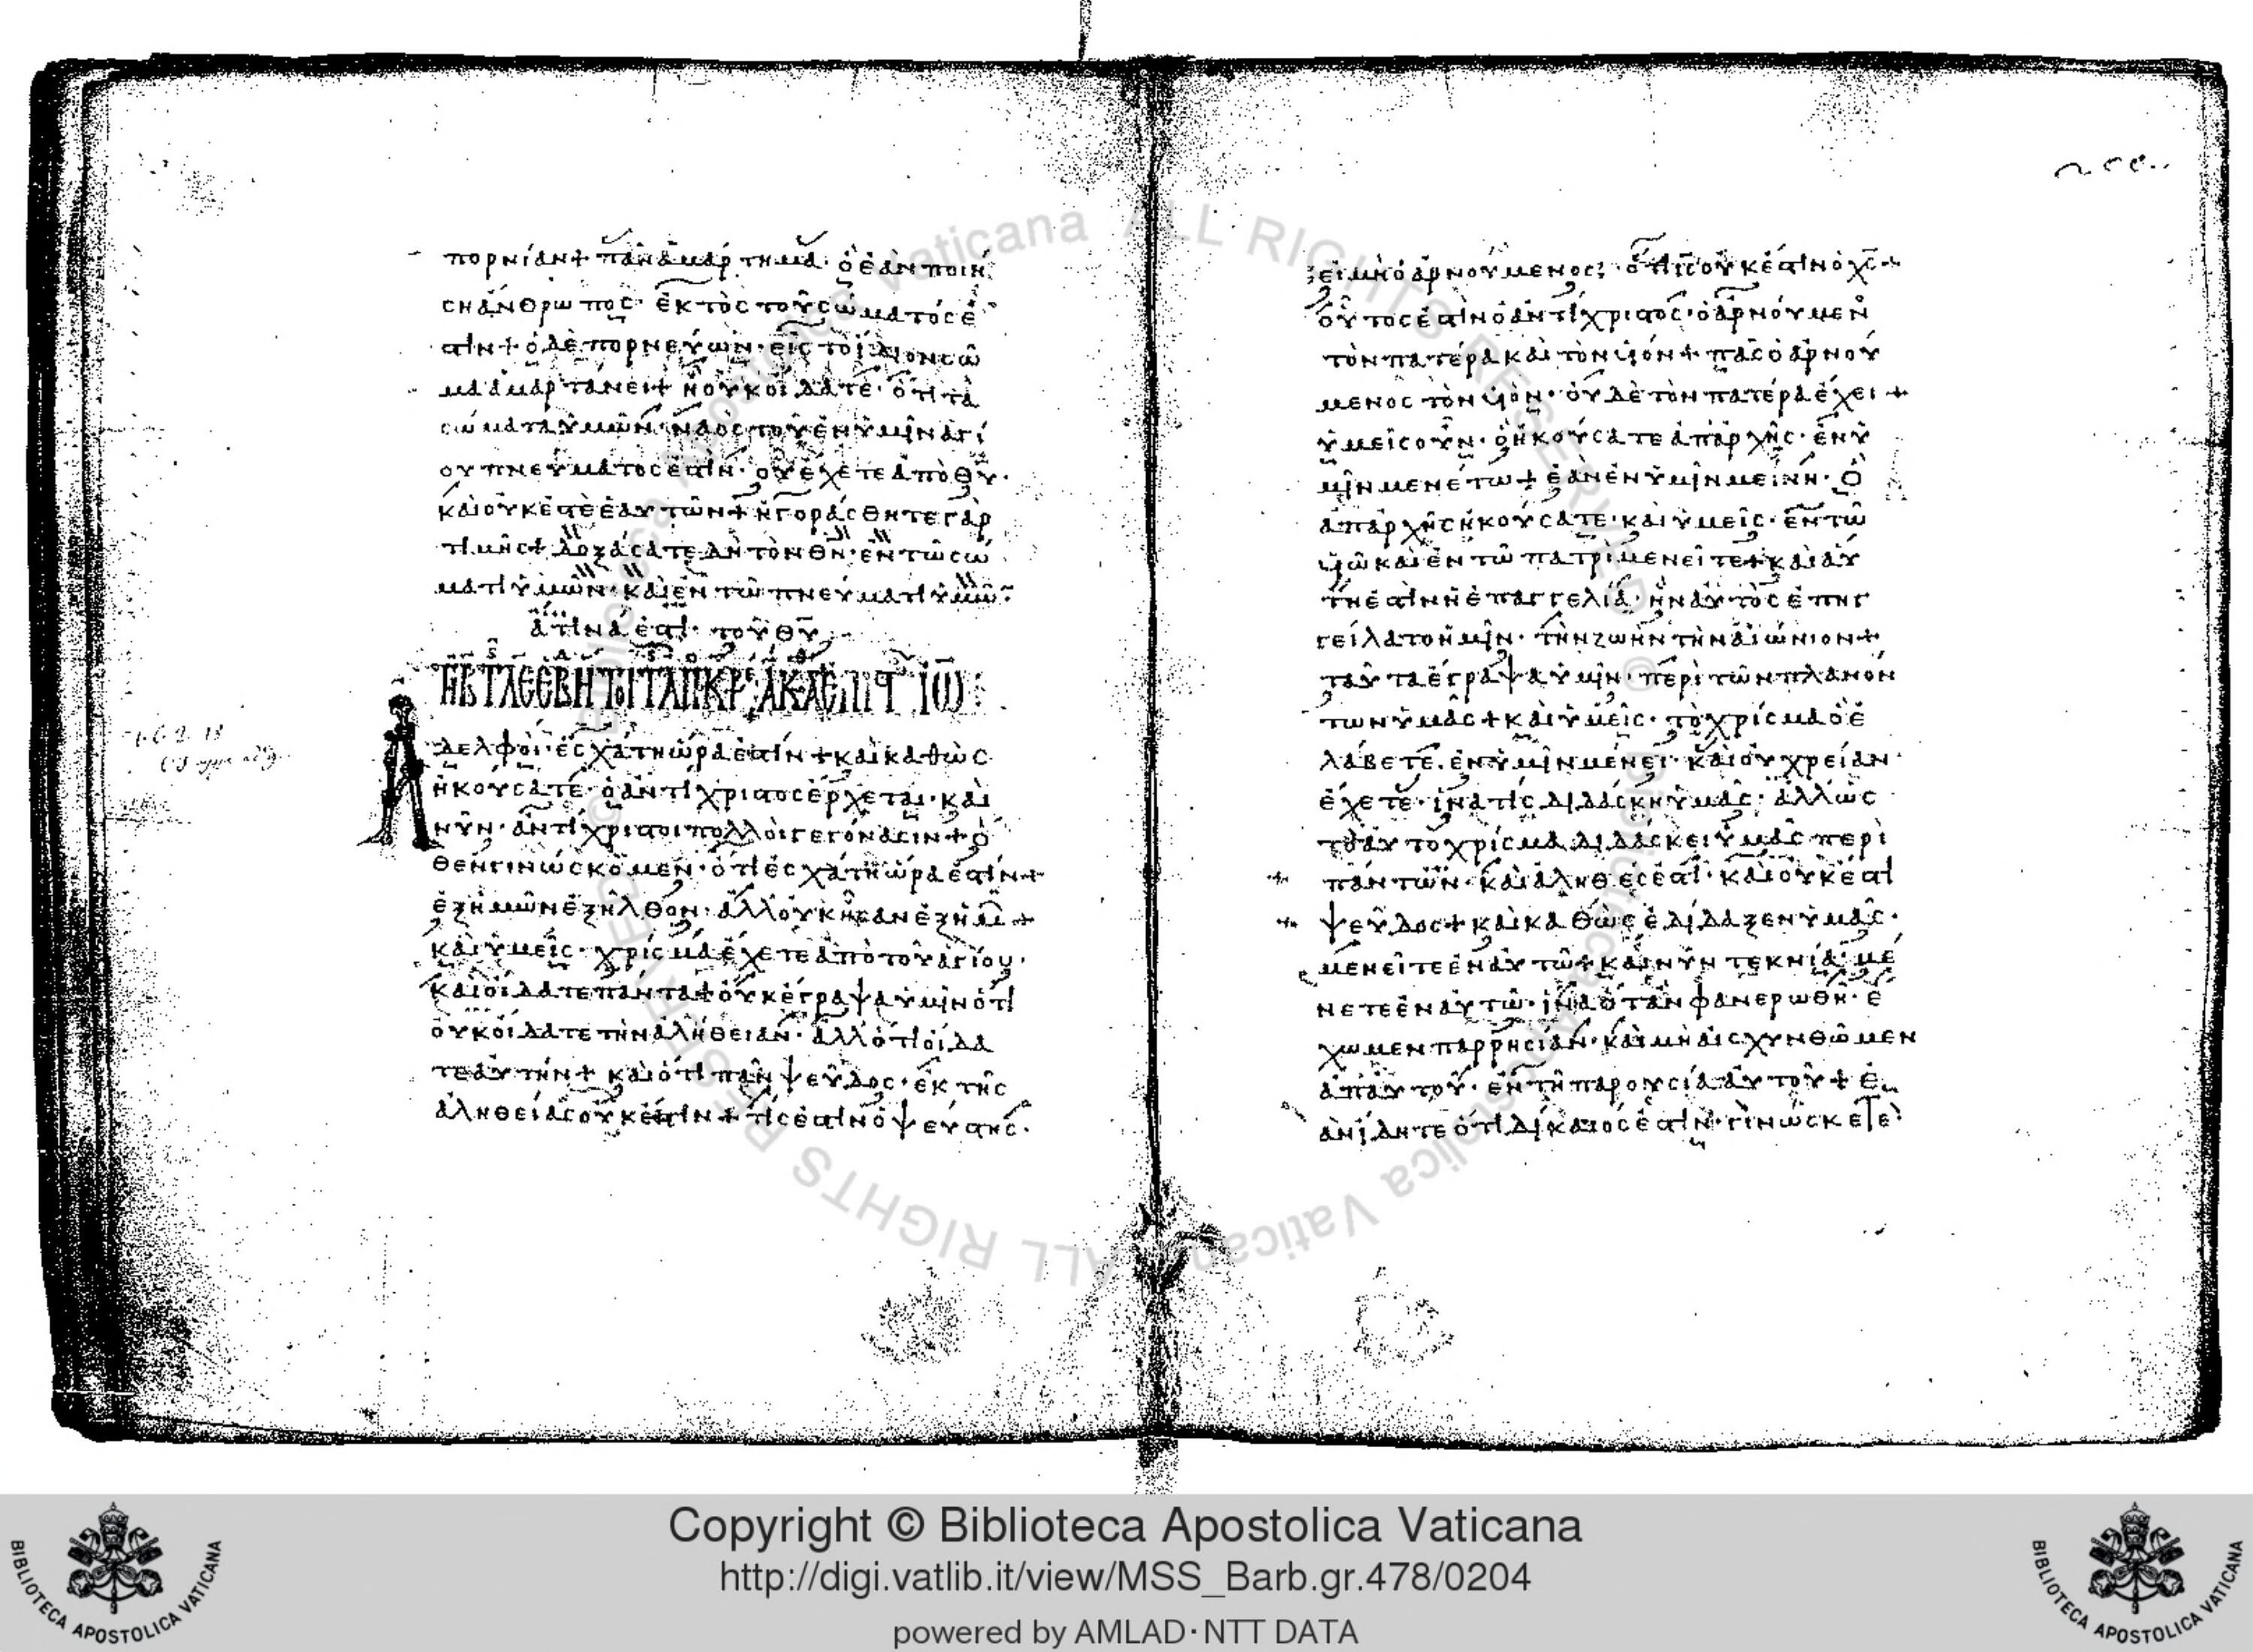 πορνίαν+ πᾶν ἁμάρτημα· ὃ ἐὰν ποιή
ση ἄνθρωπος· ἐκτὸς τοῦ σώματός ἐ
στιν+ ὁ δὲ πορνεύων· εἰς τὸ ἴδιον σῶ
μα ἁμαρτάνει+ ἢ οὐκ οἴδατε· ὅτι τὰ
σώματα ὑμῶν· ναὸς τοῦ ἐν ὑμῖν ἁγί
ου πνεύματός ἐστιν· οὗ ἔχετε ἀπὸ θυ·
καὶ οὐκ ἐστὲ ἑαυτῶν+ ἠγοράσθητε γὰρ
τιμῆς+ δοξάσατε δὴ τὸν θν· ἐν τῶ σώ
ματι ὑμῶν· καὶ ἐν τῶ πνεύματι ὑμῶ
ἅτινά ἐστι· τοῦ θυ
δελφοὶ· ἐσχάτη ὥρα ἐστίν+ καὶ καθὼς
ἠκούσατε· ὁ ἀντίχριστος ἔρχεται· καὶ
νῦν· ἀντίχριστοι πολλοὶ γεγόνασιν+ ὅ
θεν γινώσκομεν· ὅτι ἐσχάτη ὥρα ἐστίν+
ἐξ ἡμῶν ἐξῆλθον· ἀλλ' οὐκ ἦσαν ἐξ ἡμῶ+
καὶ ὑμεῖς· χρίσμα ἔχετε ἀπὸ τοῦ ἁγίου·
καὶ οἴδατε πάντα+ οὐκ ἔγραψα ὑμῖν ὅτι
οὐκ οἴδατε τὴν ἀλήθειαν· ἀλλ' ὅτι οἴδα
τε αὐτήν+ καὶ ὅτι πᾶν ψεῦδος· ἐκ τῆς
ἀληθείας οὐκ ἔστιν+ τίς ἐστιν ὁ ψεύστης·
εἰ μὴ ὁ ἀρνούμενος· ὅτι ις οὐκ ἔστιν ὁ χς+
οὗτός ἐστιν ὁ ἀντίχριστος· ὁ ἀρνούμεν
τὸν πατέρα καὶ τὸν υἱόν+ πᾶς ὁ ἀρνού
μενος τὸν υἱὸν· οὐδὲ τὸν πατέρα ἔχει+
ὑμεῖς οὖν· ὃ ἠκούσατε ἀπ' ἀρχῆς· ἐν ὑ
μῖν μενέτω+ ἐὰν ἐν ὑμῖν μείνη· ὃ
ἀπ' ἀρχῆς ἠκούσατε· καὶ ὑμεῖς· ἐν τῶ
υἱῶ καὶ ἐν τῶ πατρὶ μενεῖτε+ καὶ αὕ
τη ἐστὶν ἡ ἐπαγγελία· ἣν αὐτὸς ἐπηγ
γείλατο ἡμῖν· τὴν ζωὴν τὴν αἰώνιον+
ταῦτα ἔγραψα ὑμῖν· περὶ τῶν πλανόν
των ὑμᾶς+ καὶ ὑμεῖς· τὸ χρίσμα ὃ ἐ
λάβετε· ἐν ὑμῖν μένει· καὶ οὐ χρείαν
ἔχετε· ἵνα τίς διδάσκη ὑμᾶς· ἀλλ' ὡς
τὸ αὐτὸ χρίσμα διδάσκει ὑμᾶς περὶ
πάντων· καὶ ἀληθές ἐστι· καὶ οὐκ ἔστι
ψεῦδος+ καὶ καθὼς ἐδίδαξεν ὑμᾶς·
μενεῖτε ἐν αὐτῶ+ καὶ νῦν τεκνία· μέ
νετε ἐν αὐτῶ· ἵνα ὅταν φανερωθῆ· ἔ
χωμεν παρρησίαν· καὶ μὴ αἰσχυνθῶμεν
ἀπ' αὐτοῦ· ἐν τῆ παρουσία αὐτοῦ+ ἐ
ὰν ἴδητε ὅτι δίκαιός ἐστιν· γινώσκετε
Copyright © Biblioteca Apostolica Vaticana
http://digi.vatlib.it/view/MSS_Barb.gr.478/0204
powered by AMLAD·NTT DATA
BIBLIOTECA APOSTOLICA VATICANA
BIBLIOTECA APOSTOLICA VATICANA